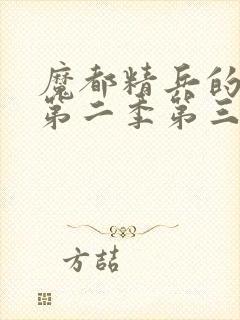 魔都精兵的
第二季第三
方喆